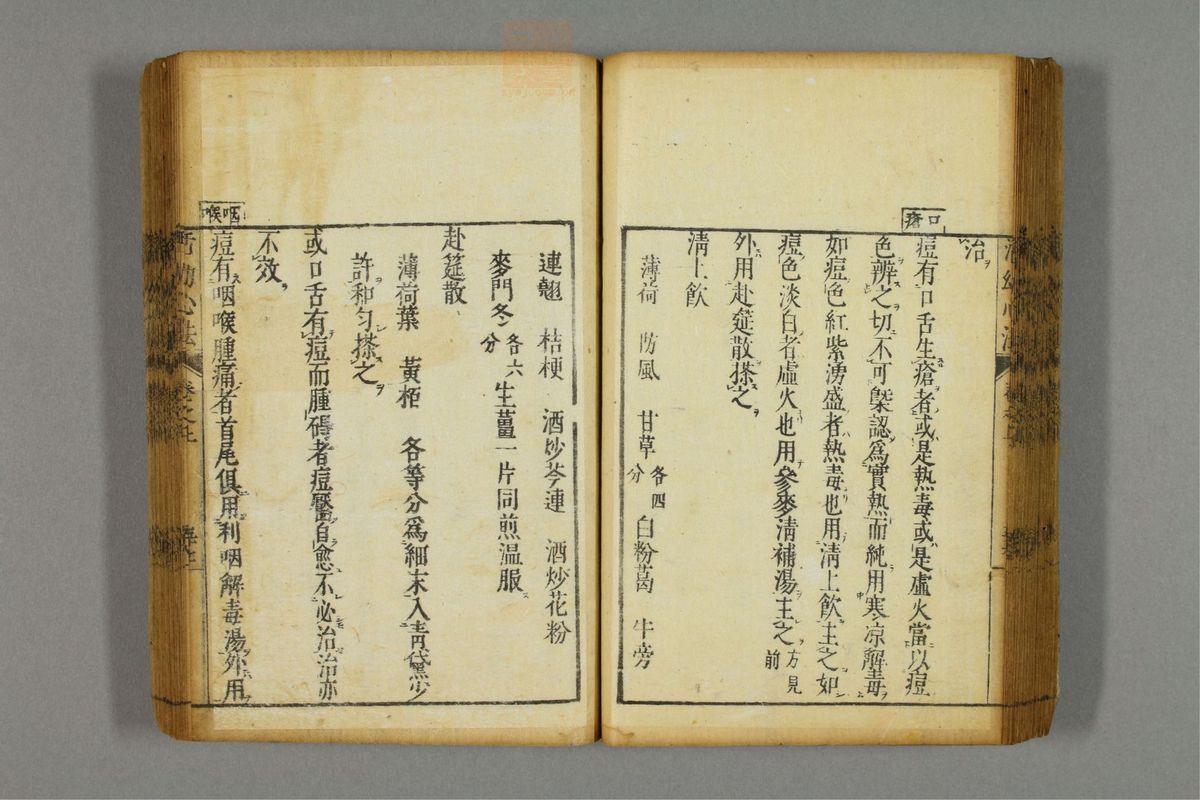 治
口瘡
痘有口舌生瘡者或是熱毒或是虛火當以痘
色辨之切不可槩認爲實熱而純用寒凉解毒
如痘色紅紫湧盛者熱毒也用淸上飮主之如
痘色淡白者虛火也用參麥淸補湯主之方見前
外用赴筵散搽之
淸上飮
薄荷 防風 甘草各四分 白粉葛 牛旁
連翹 桔梗 酒炒芩連 酒炒花粉
麥門冬各六分 生薑一片同煎温服
赴筵散
薄荷葉 黃栢 各等分爲細末入靑黛少
許和勻搽之
或口舌有痘而腫者痘靨自愈不必治治亦
不效
咽喉
痘有咽喉腫痛者首尾俱用利咽解毒湯外用